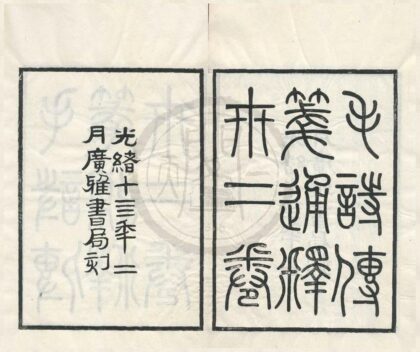 毛詩傳
箋通釋
卅二卷
光緒十三年二
月廣雅書局刻